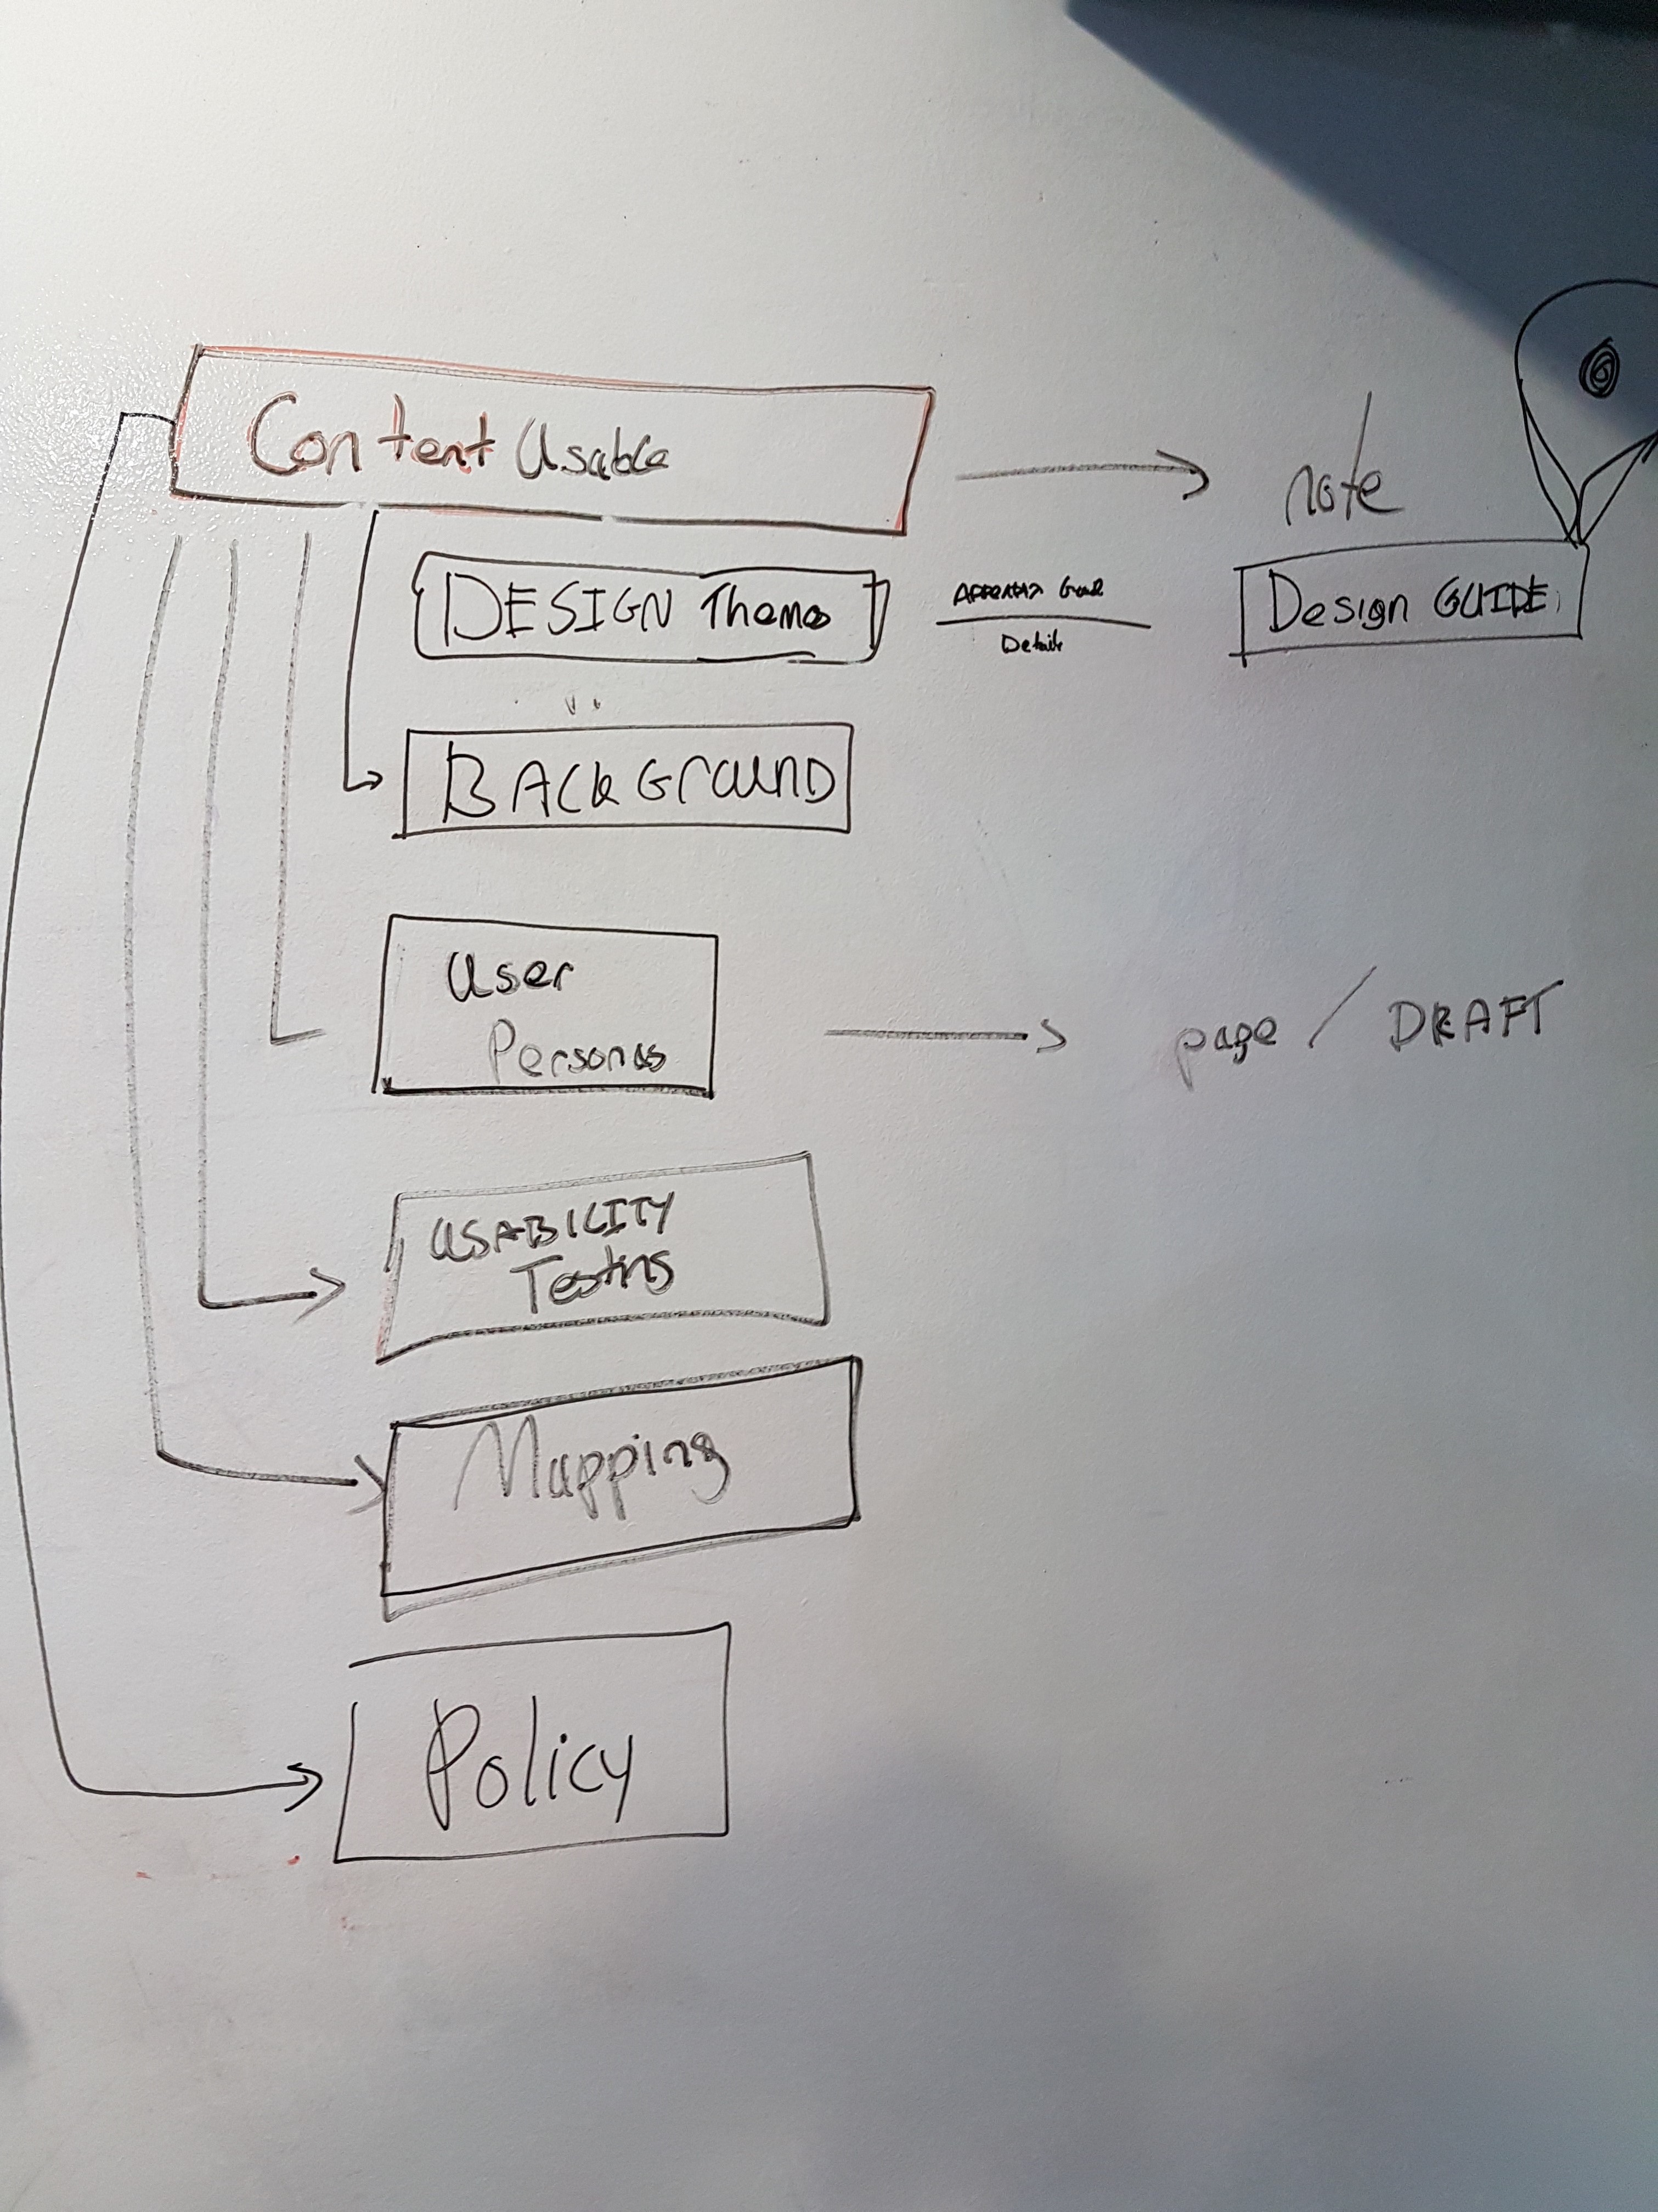 Content Usable
note
DESIGN Themes
Details
Design GUIDE
BACKGROUND
User
Personas
page / DRAFT
USABILITY
Testing
Mapping
Policy